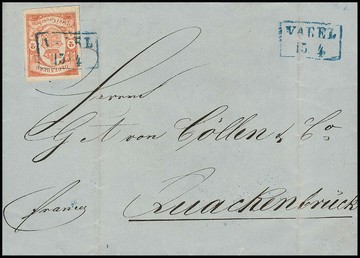 VAREL
15 4
VAREL
15/4
Herrn
G. A. von Cöllen & Co
franco
Quackenbrück